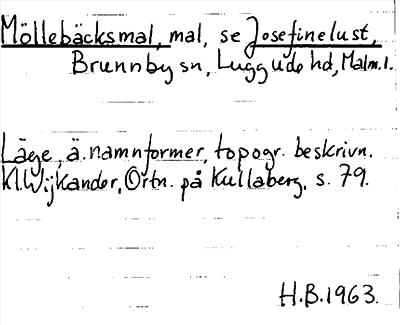 Möllebäcksmal, mal, se Josefinelust,
Brunnby sn, Luggude hd, Malm.l.
Läge, ä. namnformer, topogr. beskrivn.
K.Wijkander, Ortn. på Kullaberg, s. 79.
H.B.1963.